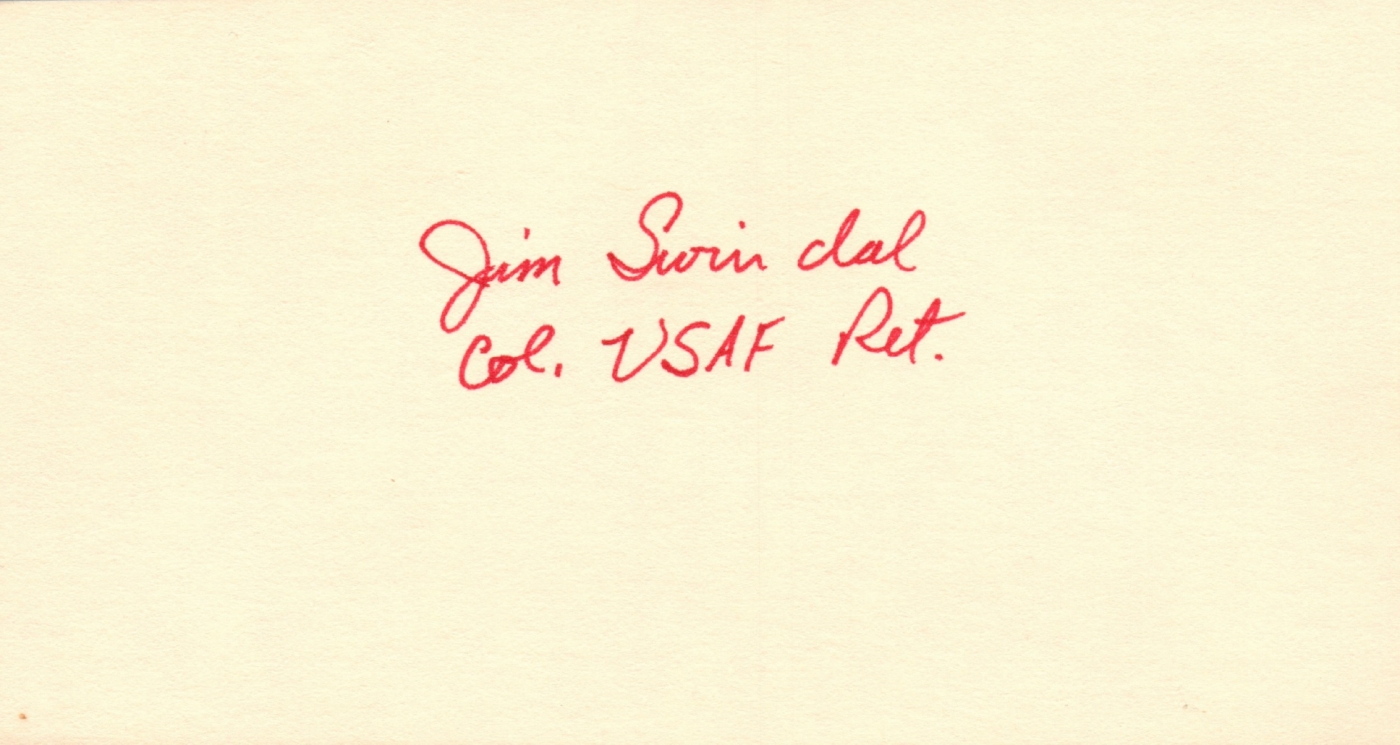 Jim Swindal
Col. USAF Ret.